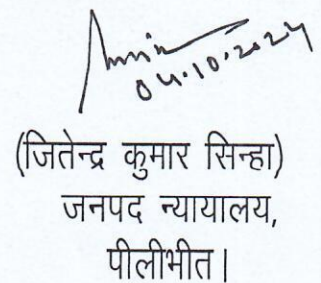 04.10.2024
(जितेन्द्र कुमार सिन्हा)
जनपद न्यायालय,
पीलीभीत।